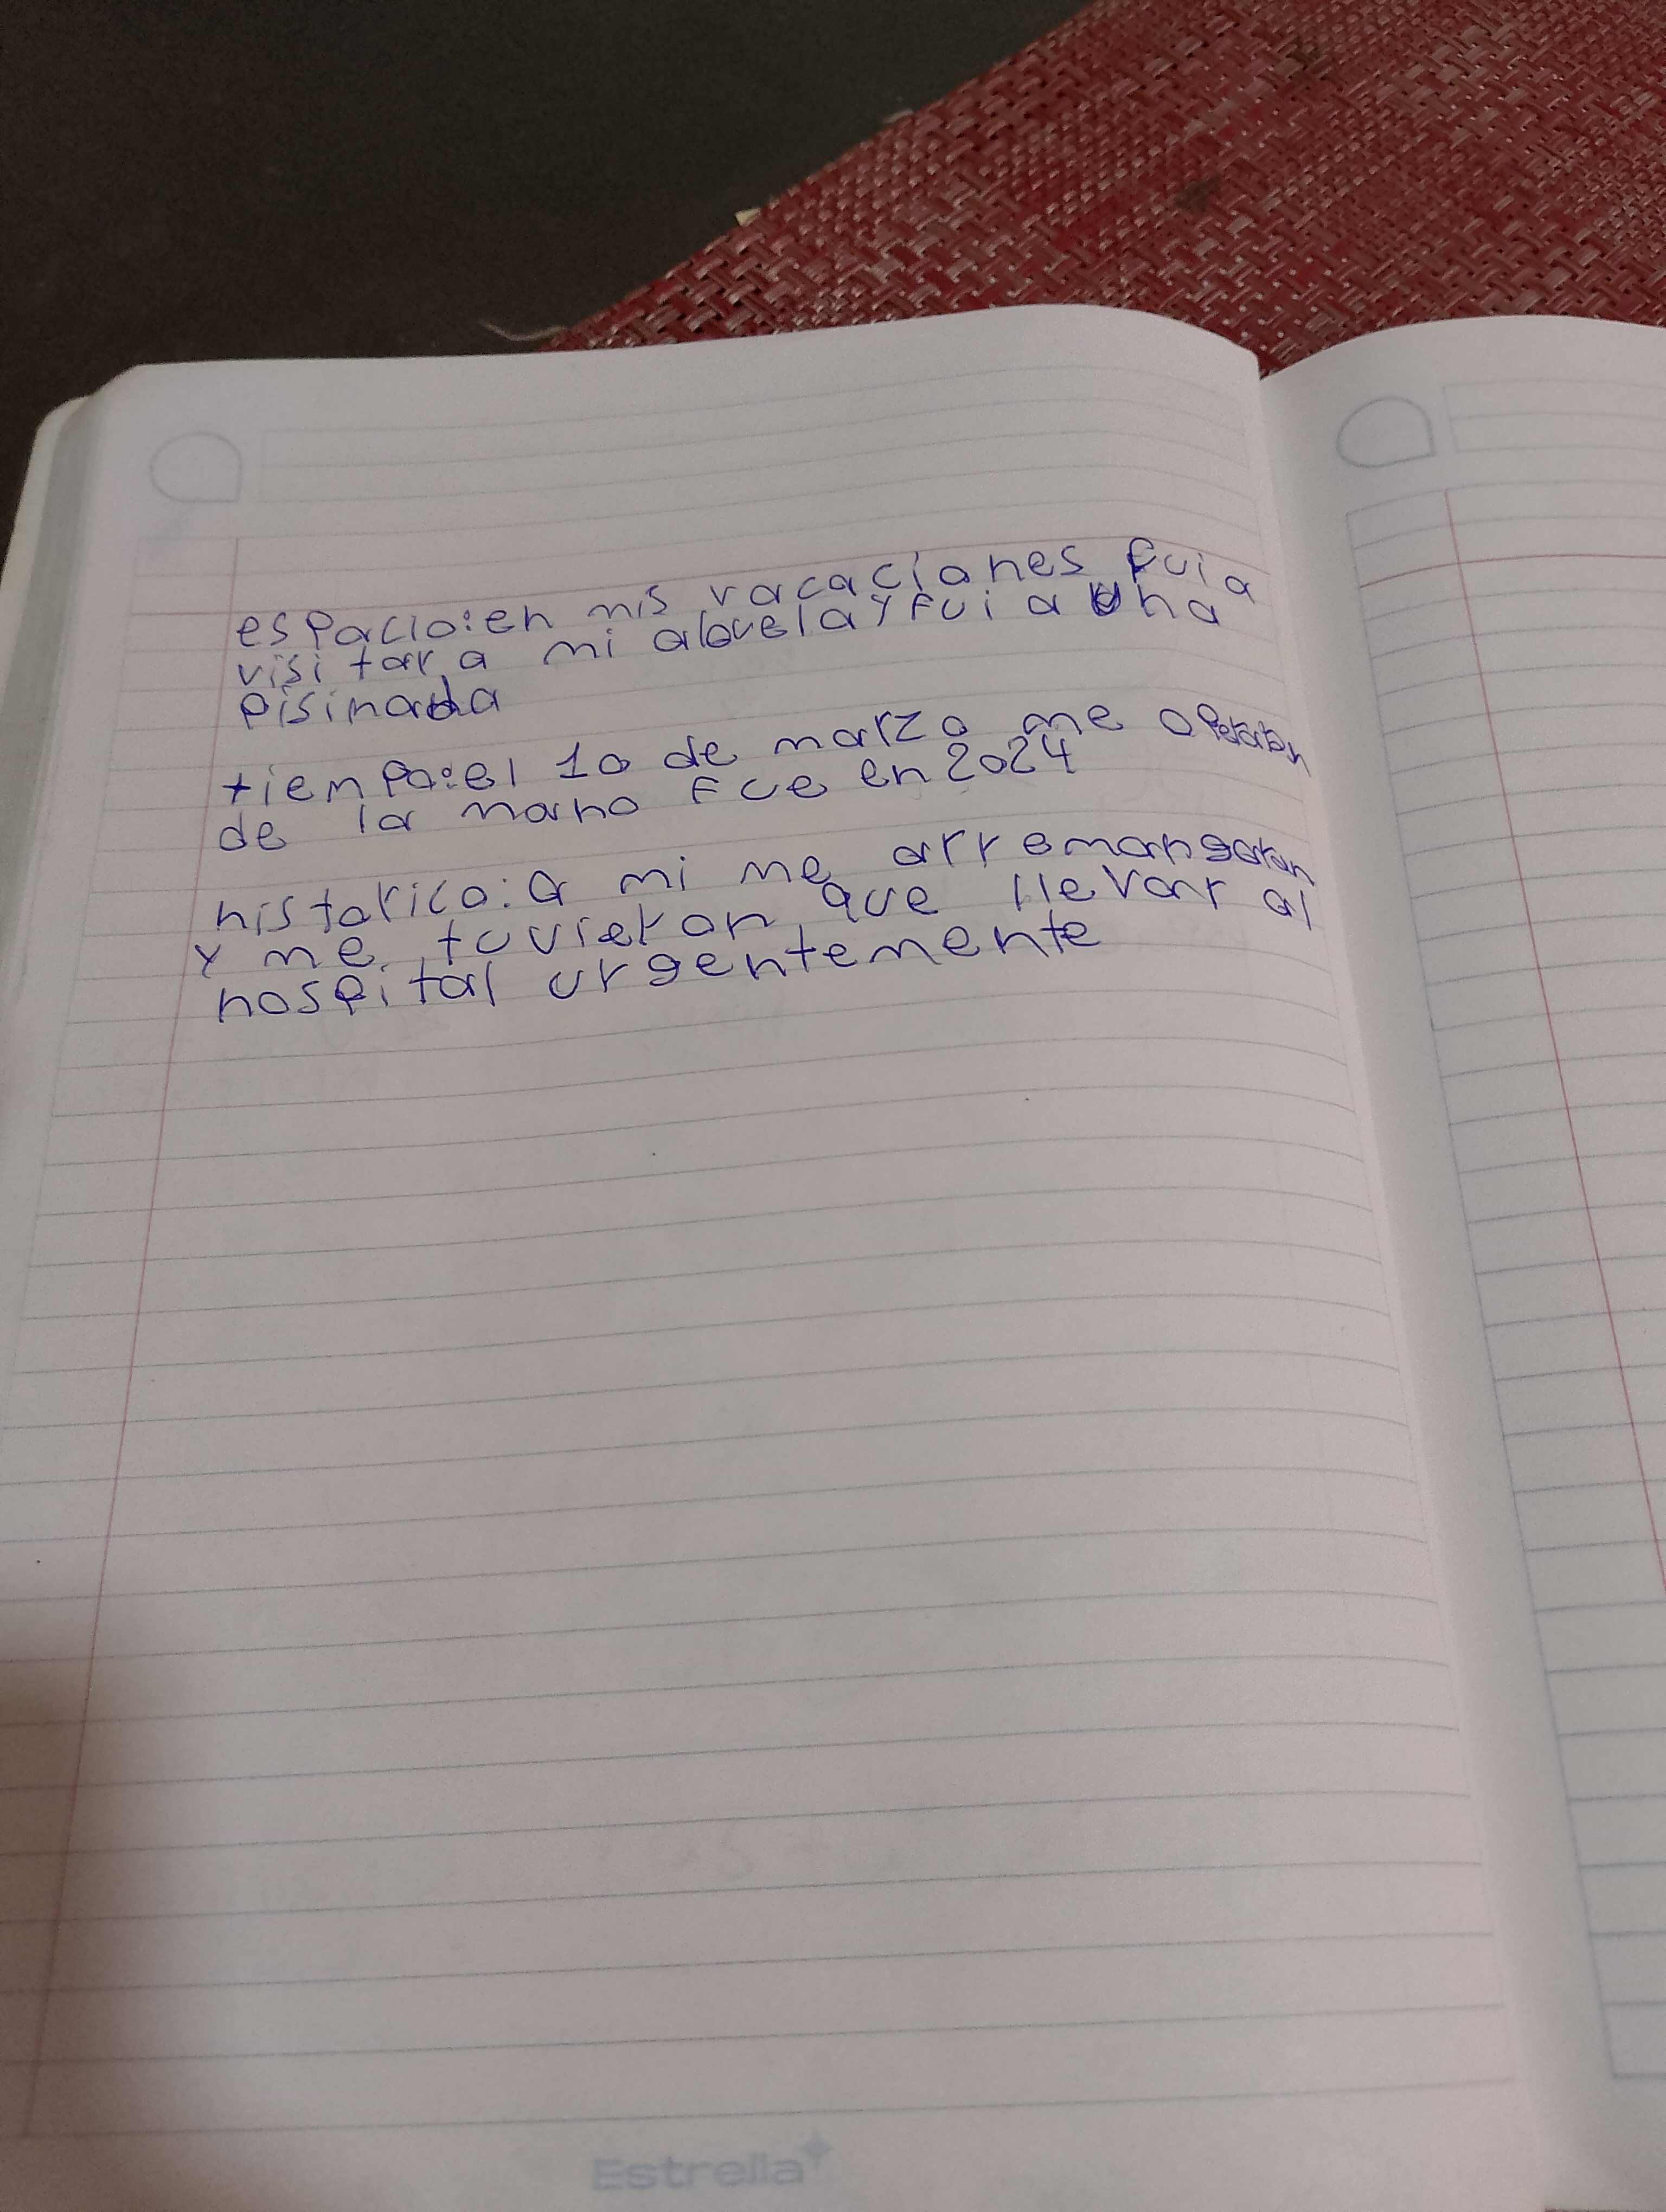 espacio: en mis vacaciones fui a
visitar a mi abuela y fui a una
pisinada
tiempo: el 10 de marzo me operaron
de la mano fue en 2024
historico: a mi me arremangaron
y me tuvieron que llevar al
hospital urgentemente
Estrella